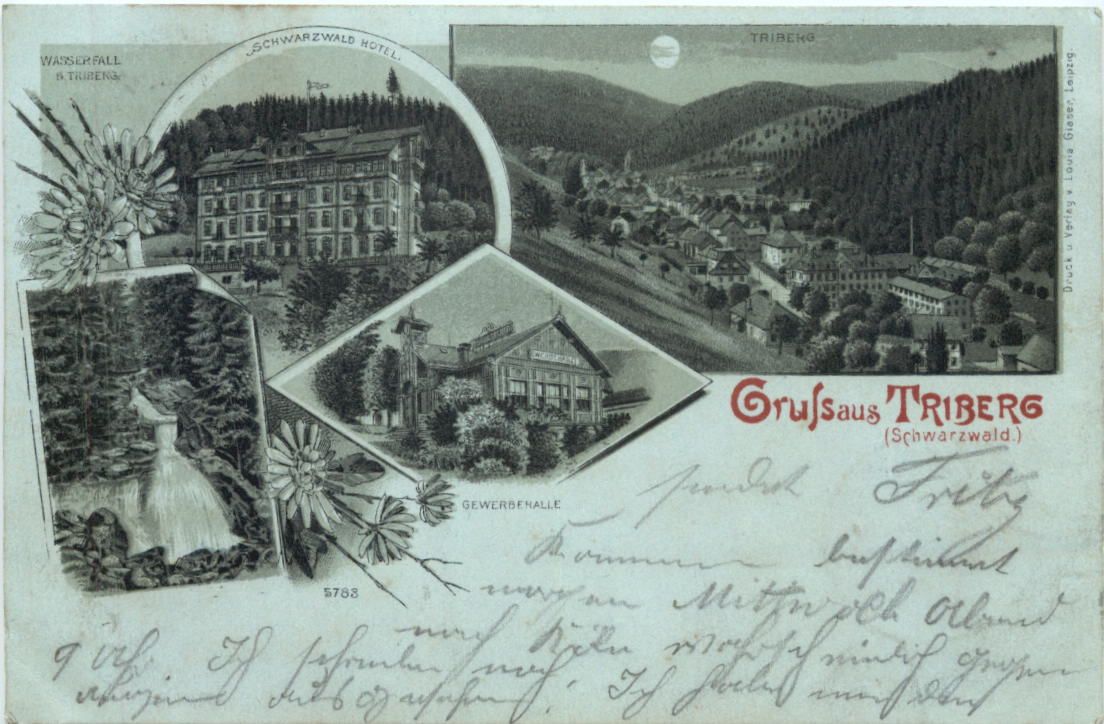 WASSERFALL
B. TRIBERG.
SCHWARZWALD HOTEL.
TRIBERG
Druck u. Verlag v. Louis Glaser, Leipzig.
GEWERBEHALLE
Gruss aus TRIBERG
(Schwarzwald.)
GEWERBEHALLE
5783
sendet Fritz
Kommen bestimmt
morgen Mittwoch Abend
nach Köln wahrscheinlich gegen
9 Uhr. Ich schreibe noch.
Ich habe